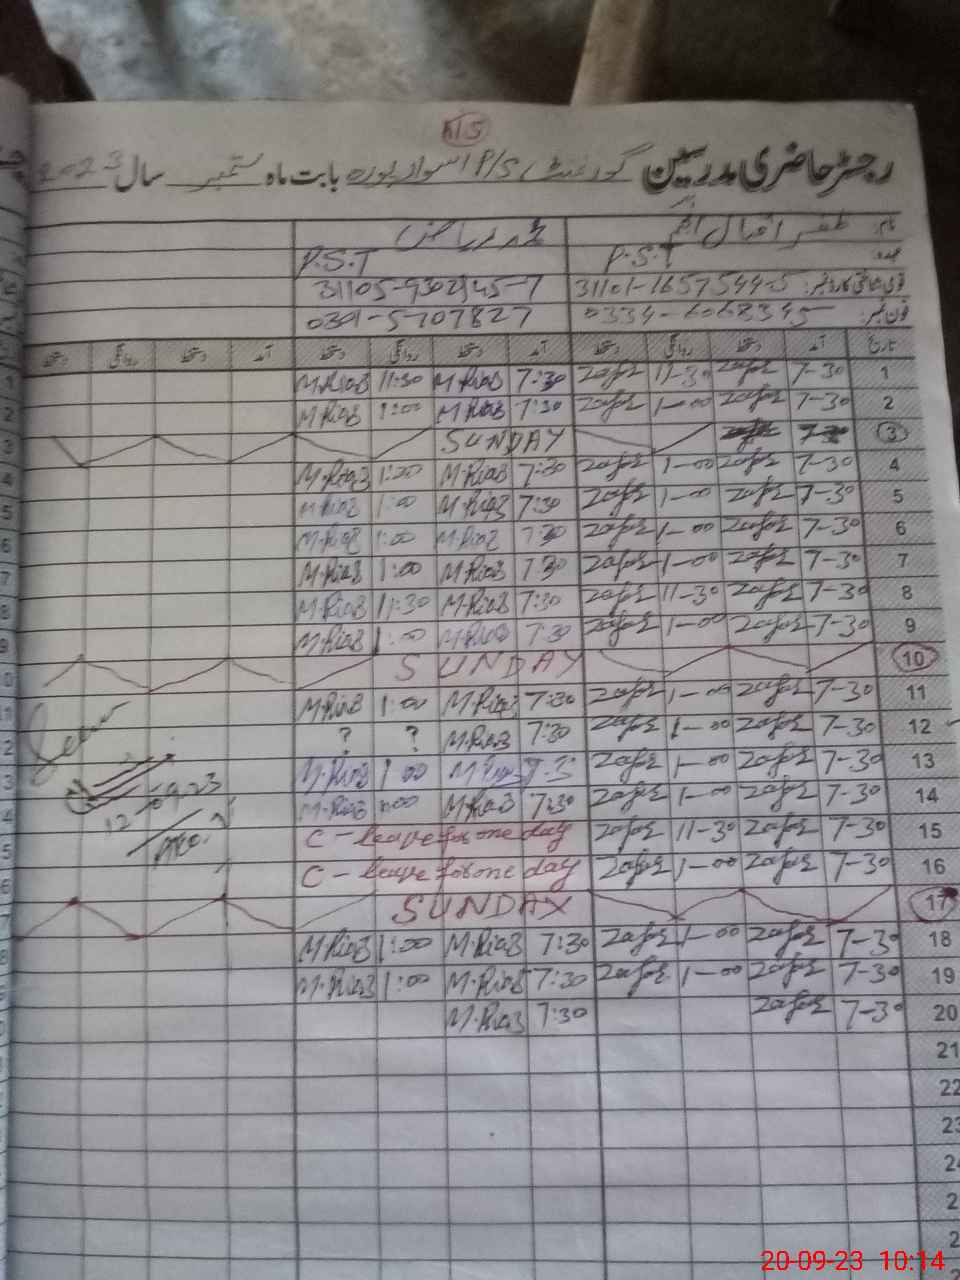 رجسٹر حاضری مدرسین گورنمنٹ P/S اسواد پورہ بابت ماہ ستمبر سال 2023
نام: ظفر اقبال انجم محمد ریاض
عہدہ: P.S.T P.S.T
31105-9302945-7
فون نمبر: 0334-6068345 0301-5707827
تاریخ آمد دستخط روانگی دستخط آمد دستخط روانگی دستخط آمد دستخط روانگی دستخط
M.Riaz 11:30 M.Riaz 7:30 Zafar 11-30 Zafar 7-30 1
M.Riaz 1:00 M.Riaz 7:30 Zafar 1-00 Zafar 7-30 2
SUNDAY 3
M.Riaz 1:00 M.Riaz 7:30 Zafar 1-00 Zafar 7-30 4
M.Riaz 1:00 M.Riaz 7:30 Zafar 1-00 Zafar 7-30 5
M.Riaz 1:00 M.Riaz 7:30 Zafar 1-00 Zafar 7-30 6
M.Riaz 1:00 M.Riaz 7:30 Zafar 1-00 Zafar 7-30 7
M.Riaz 11:30 M.Riaz 7:30 Zafar 11-30 Zafar 7-30 8
M.Riaz 1:00 M.Riaz 7:30 Zafar 1-00 Zafar 7-30 9
SUNDAY 10
M.Riaz 1:00 M.Riaz 7:30 Zafar 1-00 Zafar 7-30 11
? ? M.Riaz 7:30 Zafar 1-00 Zafar 7-30 12
M.Riaz 1:00 M.Riaz 7:3 Zafar 1-00 Zafar 7-30 13
12-09-23
M.Riaz 1:00 M.Riaz 7:30 Zafar 1-00 Zafar 7-30 14
C-leave for one day Zafar 11-30 Zafar 7-30 15
C-leave for one day Zafar 1-00 Zafar 7-30 16
SUNDAY 17
M.Riaz 1:00 M.Riaz 7:30 Zafar 1-00 Zafar 7-30 18
M.Riaz 1:00 M.Riaz 7:30 Zafar 1-00 Zafar 7-30 19
M.Riaz 7:30 Zafar 7-30 20
21
22
23
20-09-23 10:14